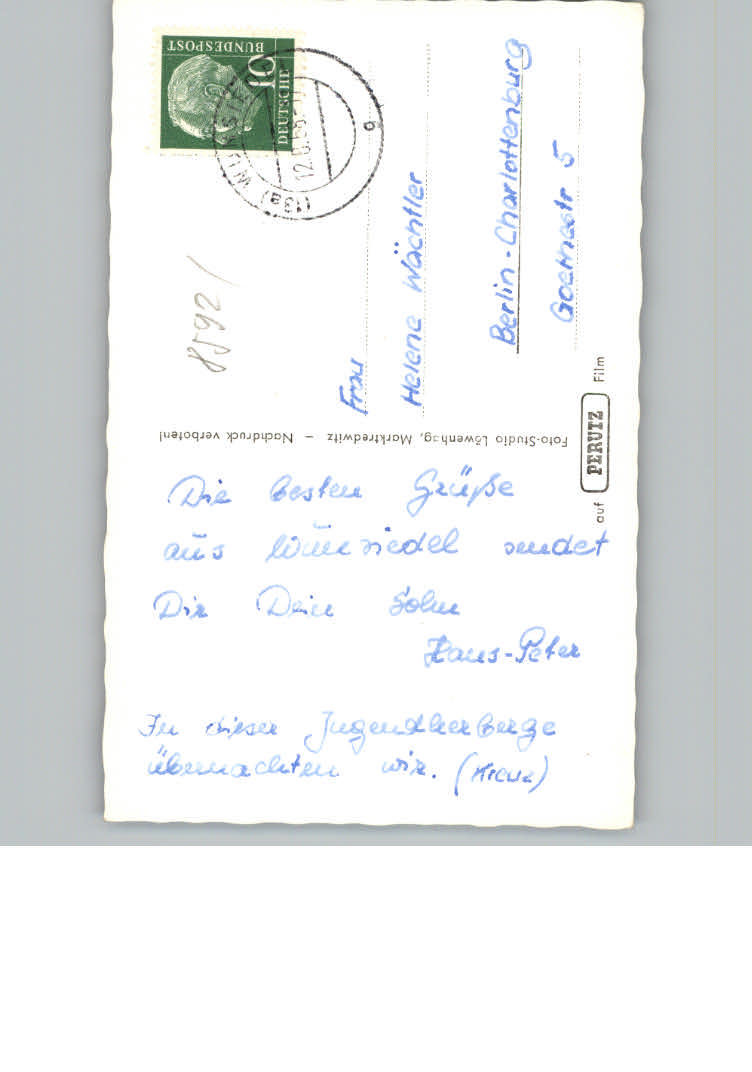 Die besten Grüße
aus Wunsiedel sendet
Dir Dein Sohn
Hans-Peter
In dieser Jugendherberge
übernachten wir. (Kreuz)
Frau
Helene Wächtler
Berlin-Charlottenburg
Goethestr 5
Foto-Studio Löwenhag, Marktredwitz – Nachdruck verboten!
auf PERUTZ Film
DEUTSCHE
BUNDESPOST
10
(13a)
8592/